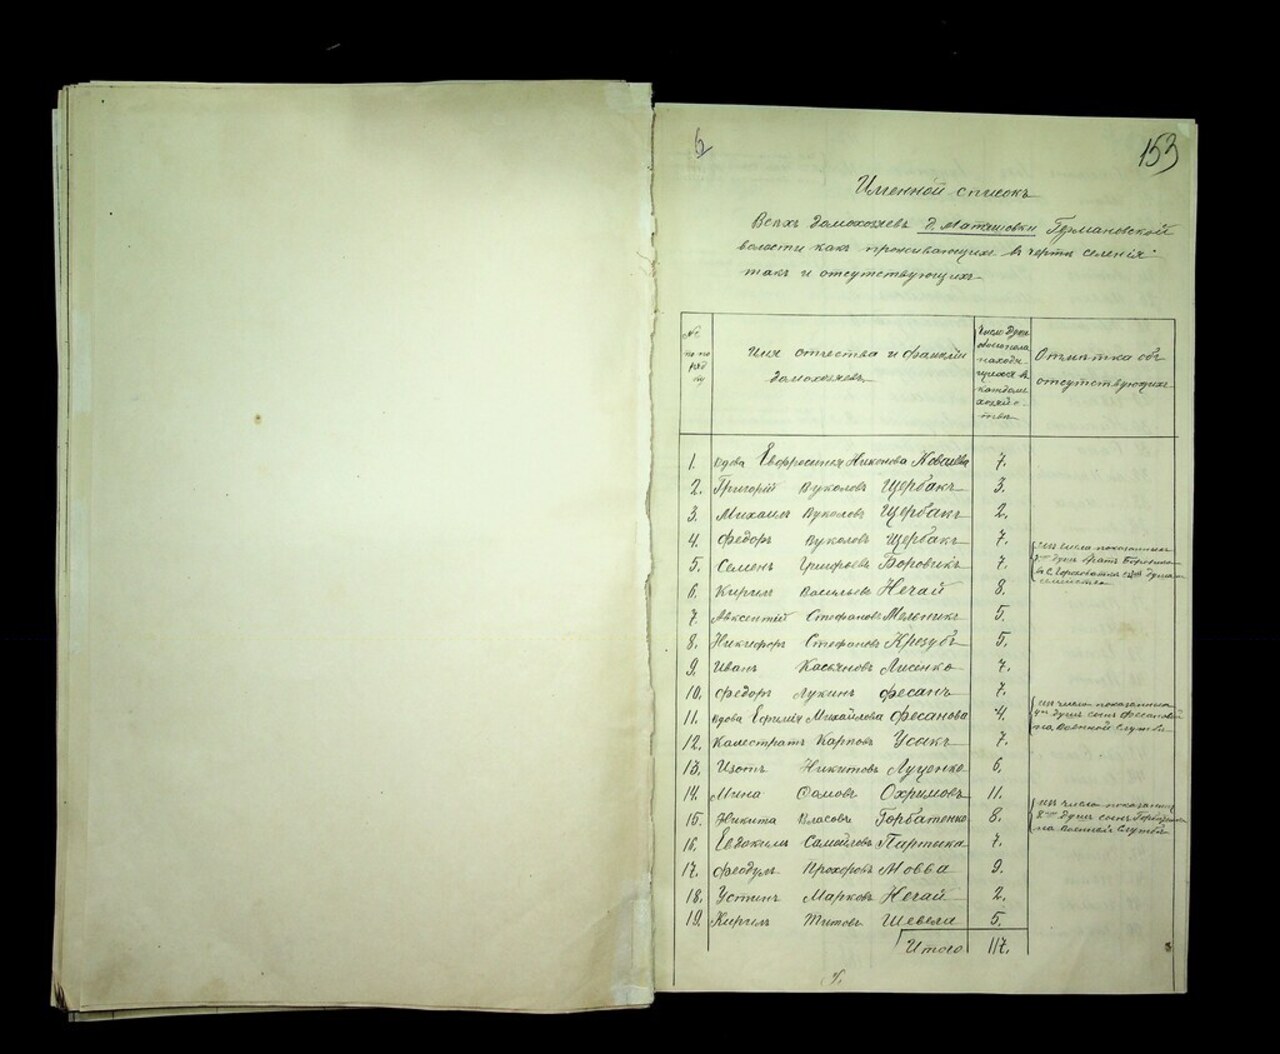 6
153
Именной списокъ
Всѣхъ домохозяевъ д. Матяшовки Германовской
волости какъ проживающихъ въ чертѣ селенія
такъ и отсутствующихъ
№ по порядку
Имя отчества и фамиліи домохозяевъ
Число душъ обоего пола находящихся въ каждомъ хозяйствѣ
Отмѣтка объ отсутствующихъ
1. вдова Евфросинія Никонова Коваліова 7.
2. Григорій Вуколовъ Щербакъ 3.
3. Михаилъ Вуколовъ Щербакъ 2.
4. Федоръ Вуколовъ Щербакъ 7.
5. Семенъ Боровикъ 7. изъ числа показанныхъ душъ братъ
6. Кирилъ Васильевъ Нечай 8.
7. Авксентій Стефановъ Мельникъ 5.
8. Никифоръ Стефановъ Крезубъ 5.
9. Иванъ Касьяновъ Лисенко 7.
10. Федоръ Лукинъ Фесанъ 7.
11. вдова Ефимія Михайлова Фесанова 4. изъ числа показанныхъ душъ сынъ Фесановой на военной службѣ
12. Калестратъ Карповъ Усыкъ 7.
13. Изотъ Никитовъ Луценко 6.
14. Мина Фамовъ Охримовъ 11.
15. Никита Власовъ Горбатенко 8. изъ числа показанныхъ душъ сынъ на военной службѣ
16. Евдокимъ Самойловъ Партыка 7.
17. Феодулъ Прохоровъ Мовва 9.
18. Устинъ Марковъ Нечай 2.
19. Кирилъ Титовъ Шевела 5.
Итого 117.